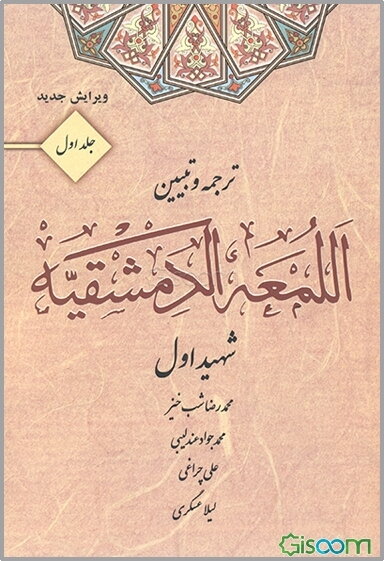 ویرایش جدید
جلد اول
ترجمه و تبیین
اَللُّمعَه الدِّمَشقیَّه
شهید اول
محمدرضا شب خیز
محمدجواد عندلیبی
علی چراغی
لیلا عسکری
Gisoom